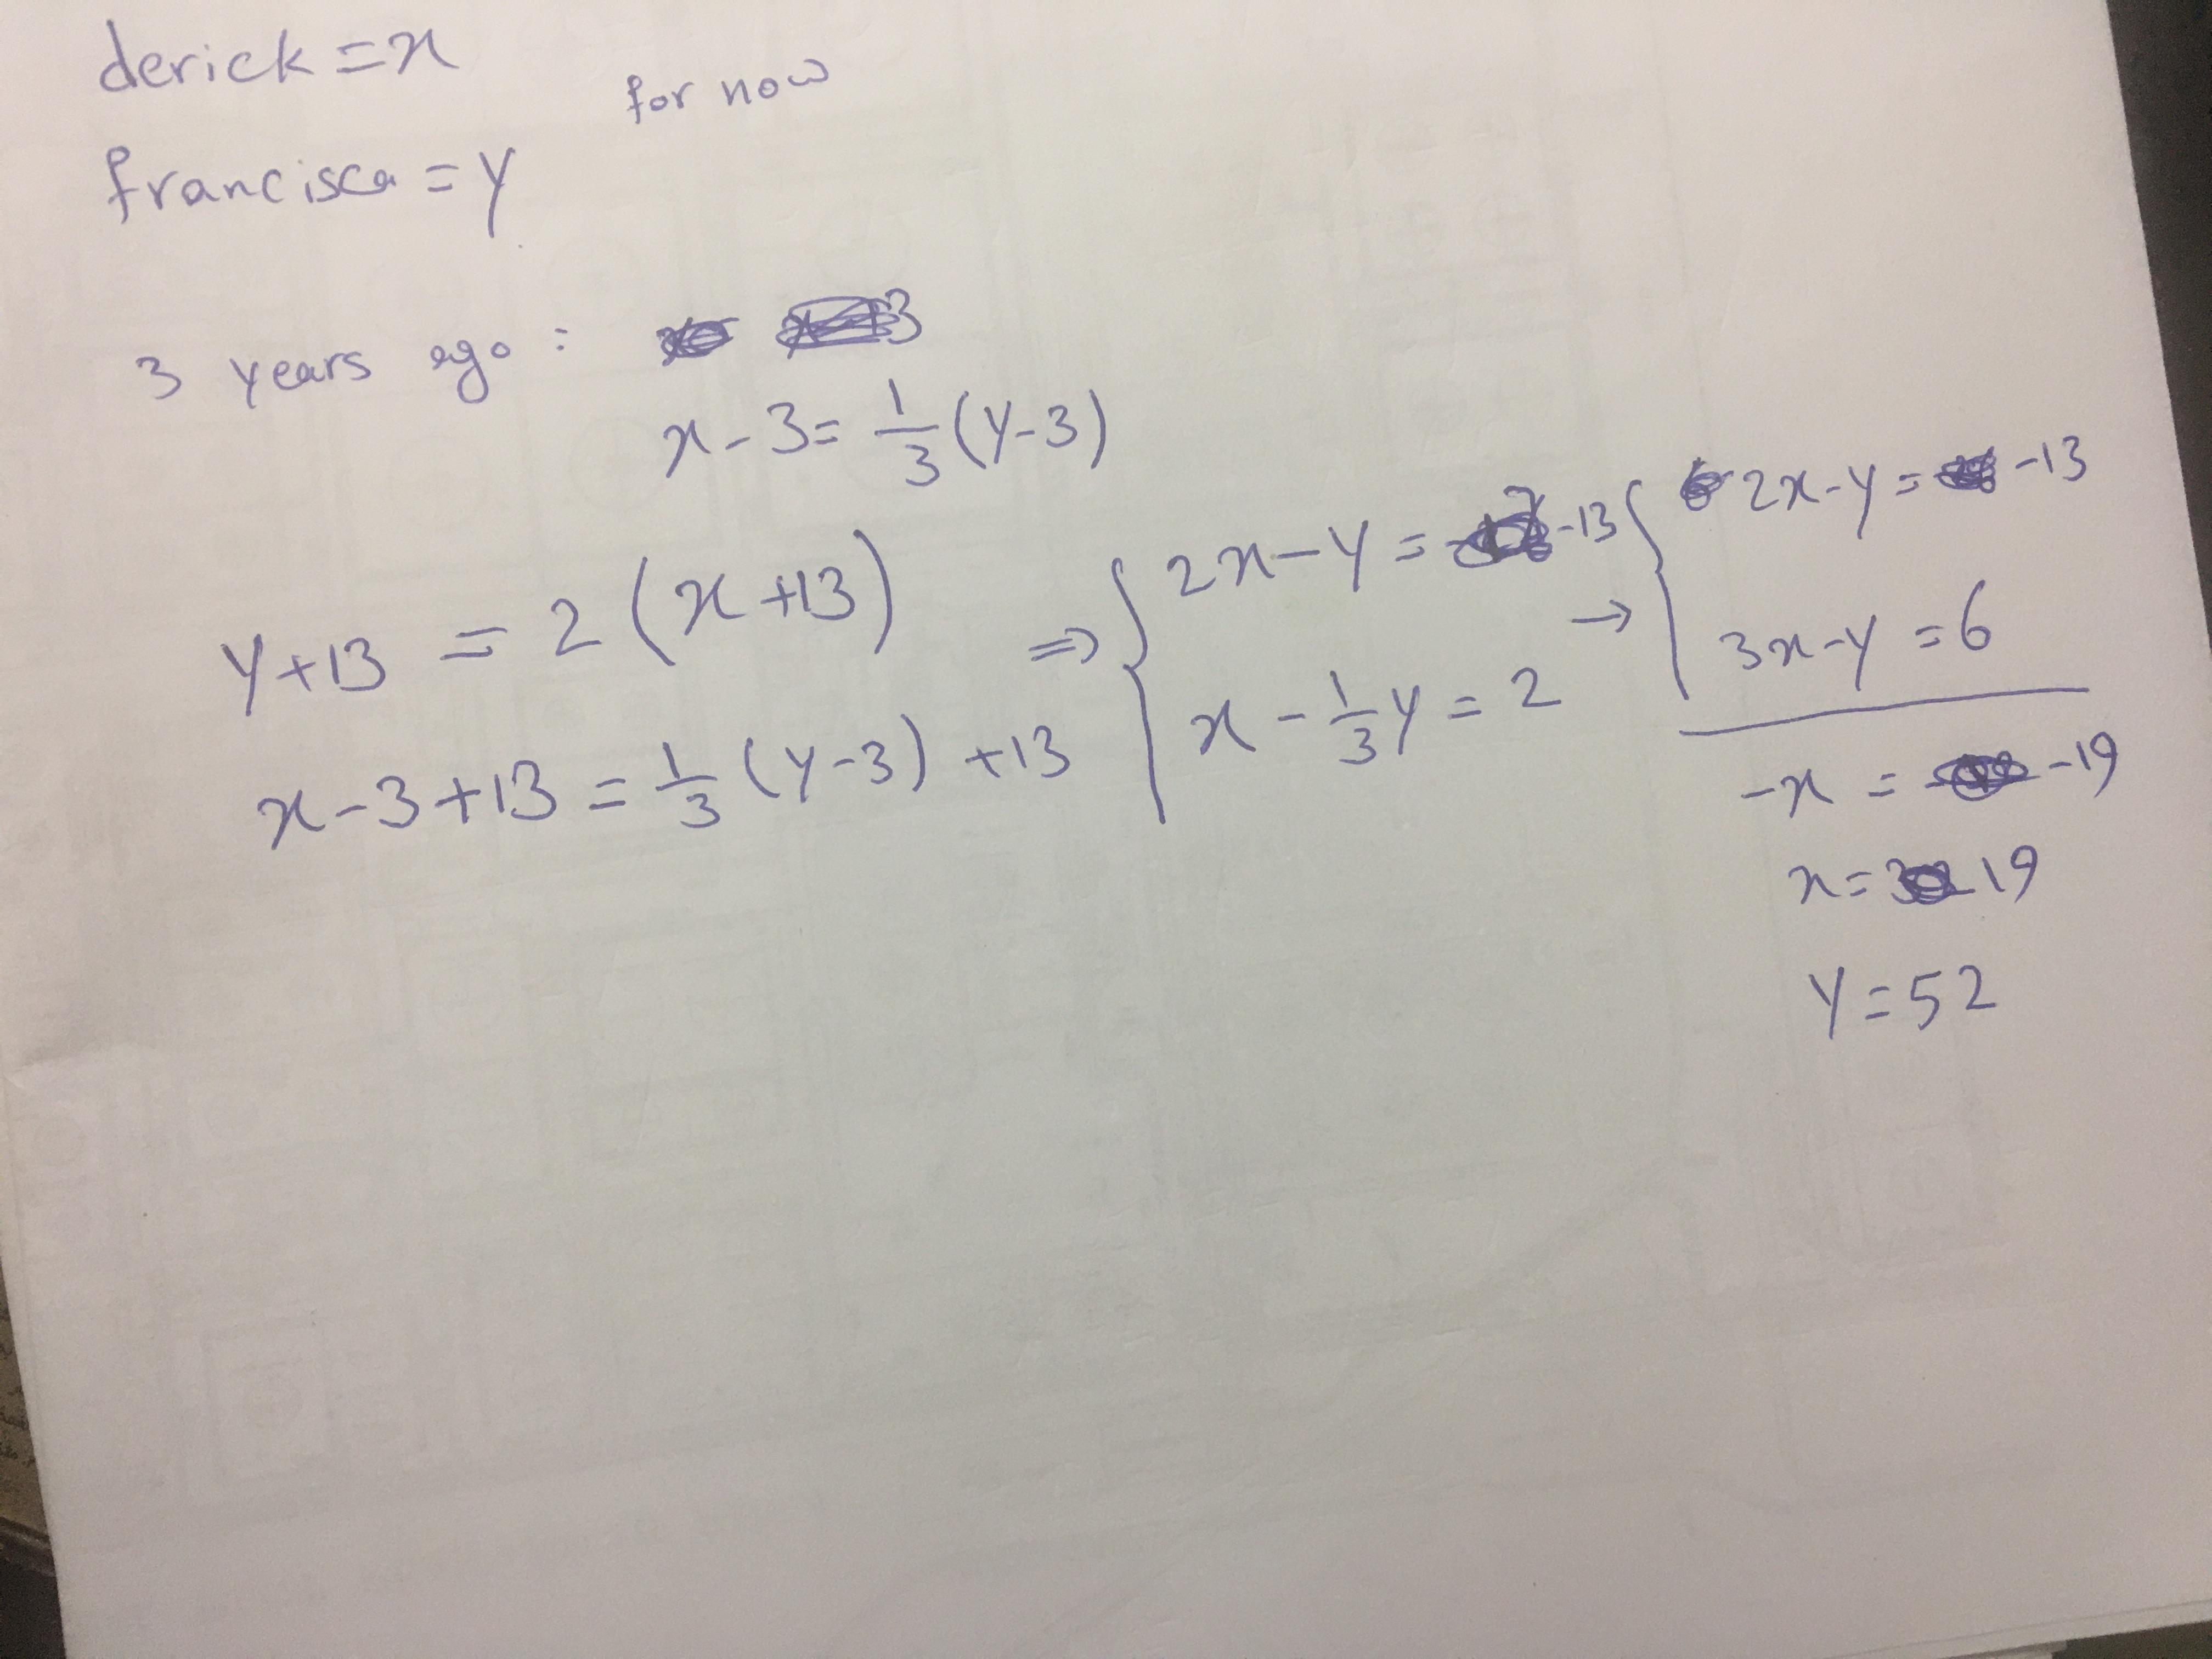 derick = x
for now
francisca = y
3 years ago : 3
x - 3 = 1/3 (y-3)
y+13 = 2 (x+13)
x-3+13 = 1/3 (y-3) +13
⇒ { 2x - y = -13
x - 1/3 y = 2
→ { 2x-y = -13
3x-y = 6
-x = -19
x = 3 19
y = 52